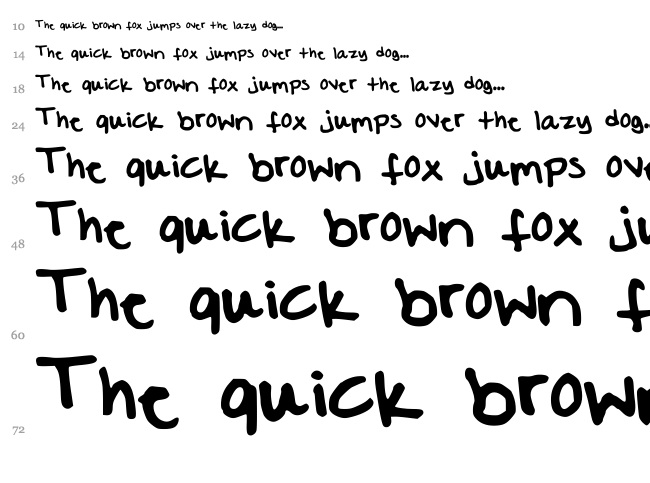 10 The quick brown fox jumps over the lazy dog...
14 The quick brown fox jumps over the lazy dog...
18 The quick brown fox jumps over the lazy dog...
24 The quick brown fox jumps over the lazy dog.
36 The quick brown fox jumps ove
48 The quick brown fox ju
60 The quick brown f
72 The quick brown